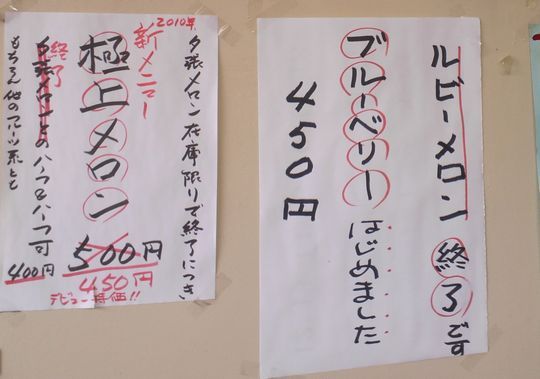 ルビーメロン終了です
ブルーベリーはじめました
450円
2010年
夕張メロン在庫限りで終了につき
新メニュー
極上メロン
500円
450円
デビュー特価!!
終了
夕張メロンとのハーフ&ハーフ可
もちろん他のフルーツ系とも
400円